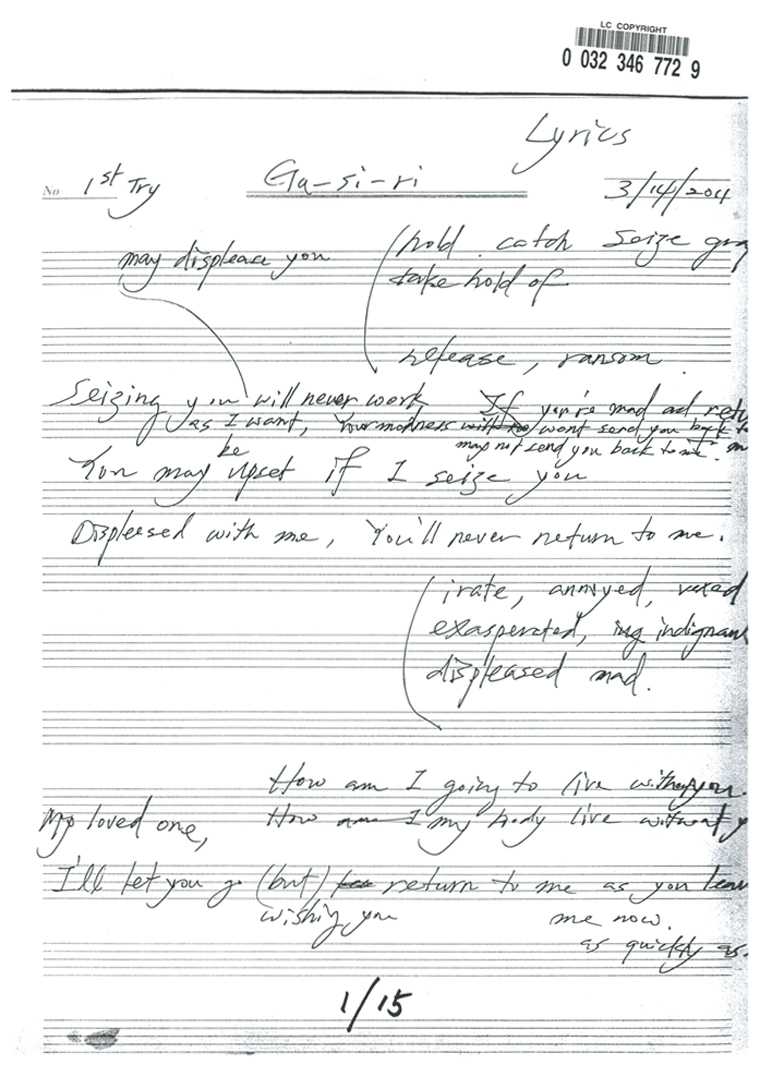 LC COPYRIGHT
0 032 346 772 9
Lyrics
No 1st Try Ga-si-ri 3/14/201
may displease you (hold catch seize
take hold of
release, ransom
Seizing you will never work If you're mad
as I want, Your madness won't send you back
may not send you back to me
be
You may upset if I seize you
Displeased with me, You'll never return to me.
(irate, annoyed, vexed
exasperated, indignan
displeased mad.
How am I going to live without you.
My loved one, How my body live without y
I'll let you go (but) return to me as you leav
wishing you me now.
as quickly as
1/15